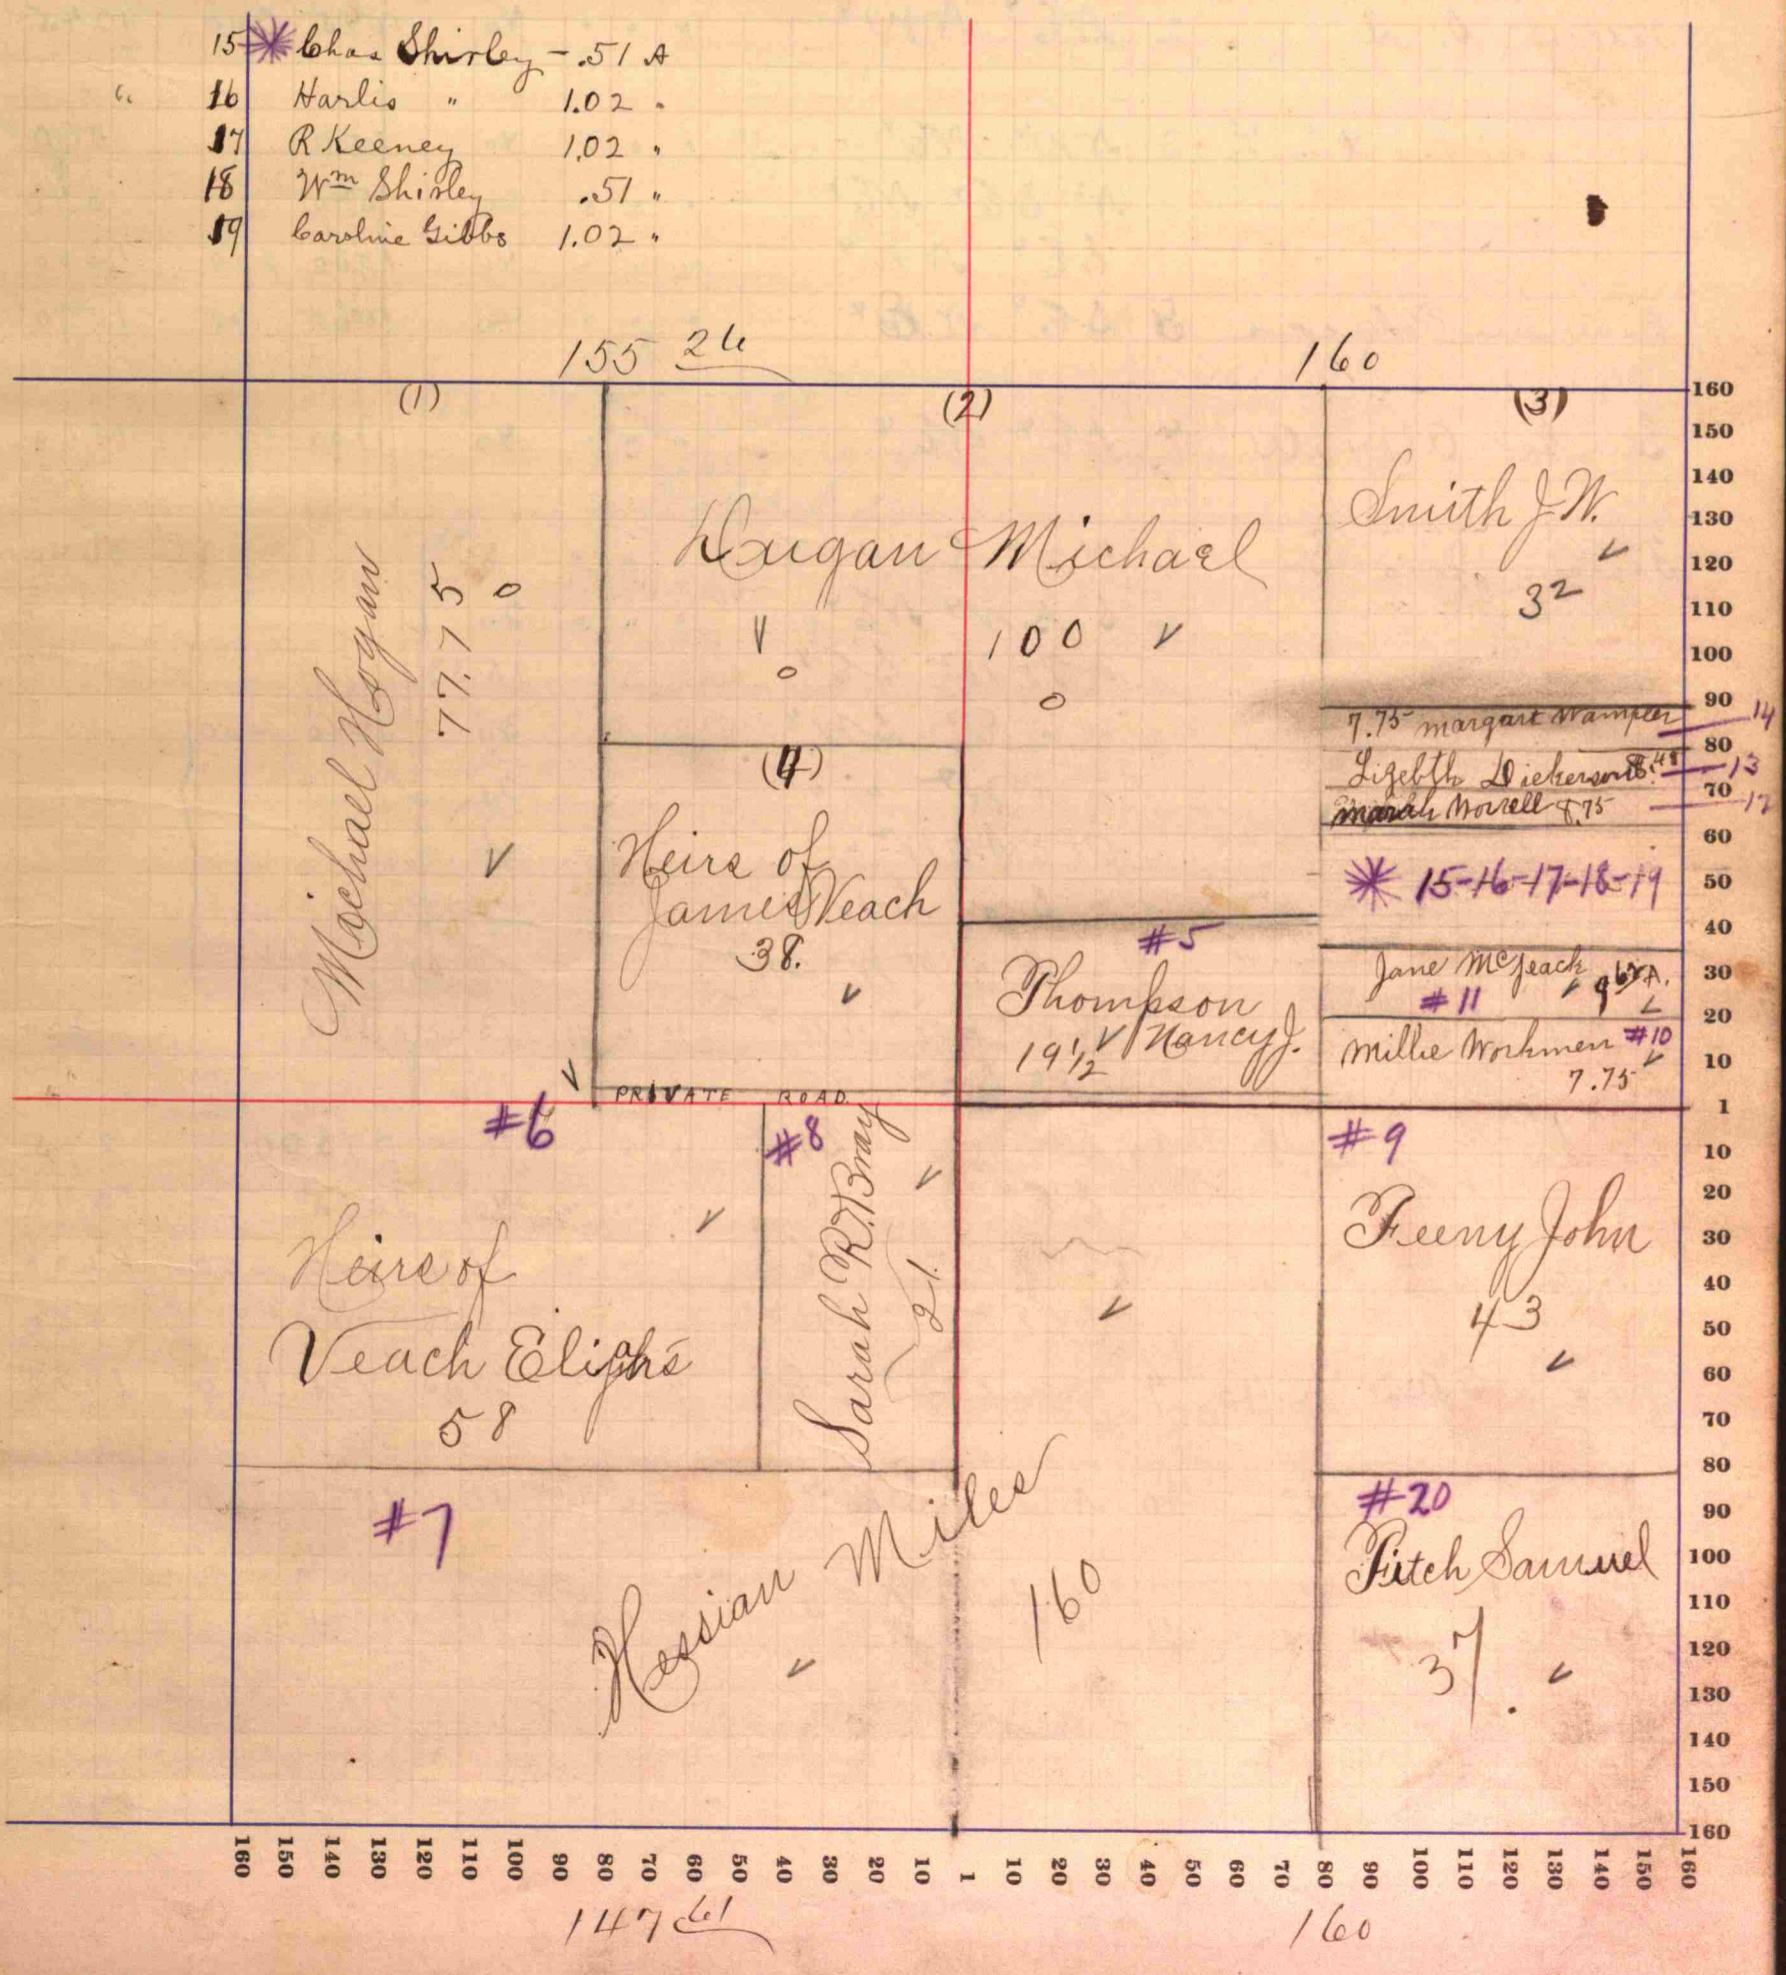 15 Chas Shirley - .51 A
" 16 Harlis " 1.02 "
17 R Keeney 1.02 "
18 Wm Shirley .51 "
19 Caroline Gibbs 1.02 "
155 26
160
(1)
(2)
(3)
Michael Hogan
77.75
Michael
100
Smith J.W.
32
7.75 Margaret Wampler 14
Lizebth Dickerson 13
Worrell 12
15-16-17-18-19
(4)
Heirs of
James Veach
38.
#5
Thompson
Nancy J.
19 1/2
Jane
#11
Millie Workmen #10
7.75
PRIVATE ROAD
#6
Heirs of
Veach Elijah's
58
#8
Sarah R. Bray
21.
#9
Feeny John
43
#7
Hessian Miles
160
#20
Fitch Samuel
37.
160
150
140
130
120
110
100
90
80
70
60
50
40
30
20
10
1
10
20
30
40
50
60
70
80
90
100
110
120
130
140
150
160
160 150 140 130 120 110 100 90 80 70 60 50 40 30 20 10 1 10 20 30 40 50 60 70 80 90 100 110 120 130 140 150 160
147 61
160